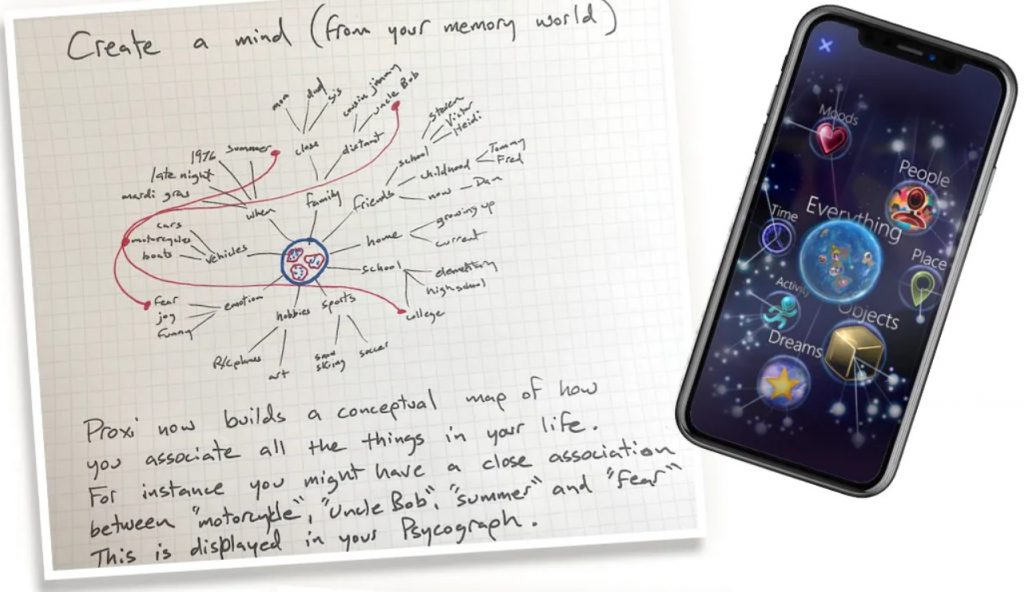 Create a mind (from your memory world)
mom
dad
sis
cousin jimmy
uncle Bob
close
distant
family
Steven
Victor
Heidi
school
childhood
Tommy
Fred
now
Dan
friends
1976
summer
late night
mardi gras
when
cars
motorcycles
boats
vehicles
home
growing up
current
school
elementary
high school
college
fear
joy
funny
emotion
hobbies
sports
R/C planes
art
snow
skiing
soccer
Proxi now builds a conceptual map of how
you associate all the things in your life.
For instance you might have a close association
between "motorcycle", "uncle Bob", "summer" and "fear"
This is displayed in your Psycograph.
Moods
People
Everything
Time
Place
Activity
Objects
Dreams